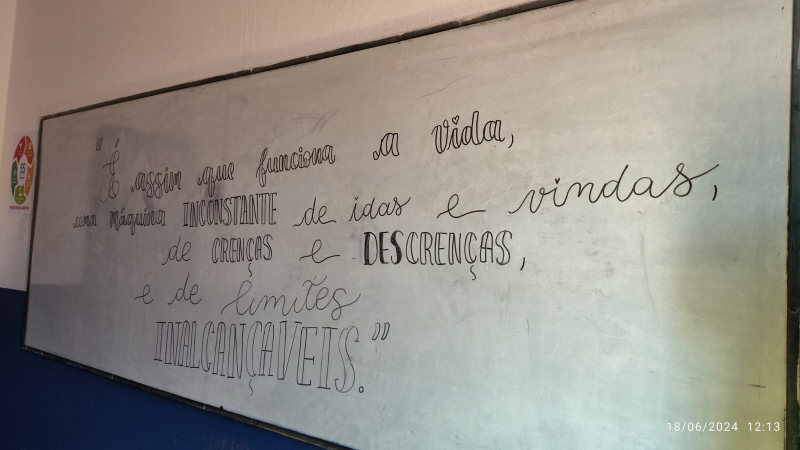 "É assim que funciona a vida,
uma máquina INCONSTANTE de idas e vindas,
de CRENÇAS e DESCRENÇAS,
e de limites
INALCANÇAVEIS."
5S
18/06/2024 12:13